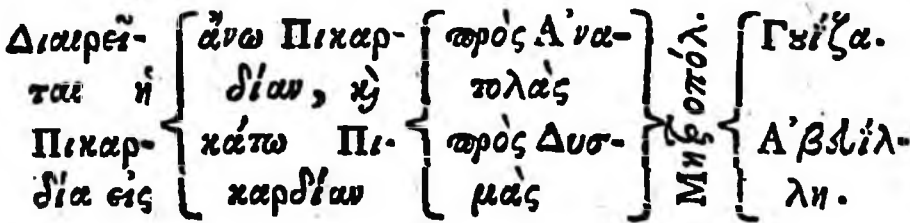 Διαιρεῖ-
ται ἡ
Πικαρ-
δία εἰς
ἄνω Πικαρ-
δίαν, ϗ
κάτω Πι-
καρδίαν
πρὸς Ἀνα-
τολὰς
πρὸς Δυσ-
μὰς
Μητροπόλ.
Γȣΐζα.